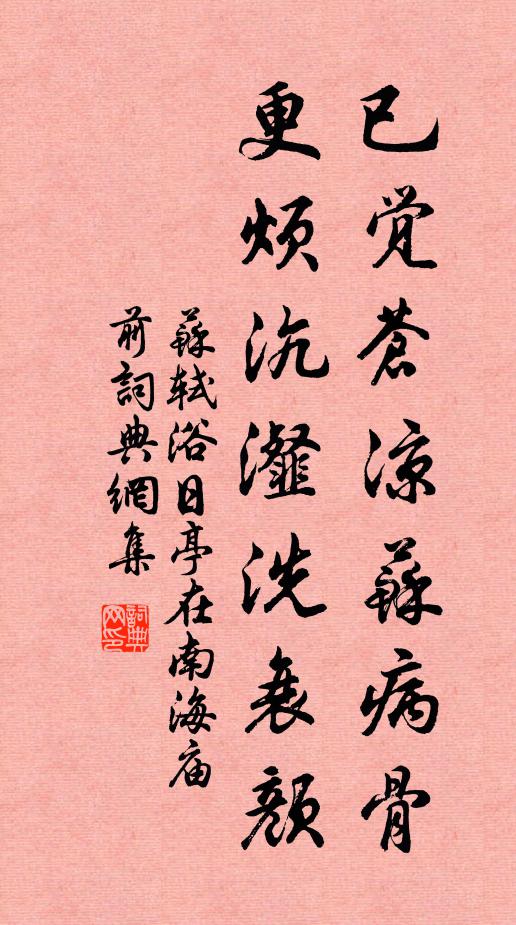 已觉苍凉蘇病骨
更烦沆瀣洗衰颜
蘇轼浴日亭在南海庙
前詞典網集
詞典
网印